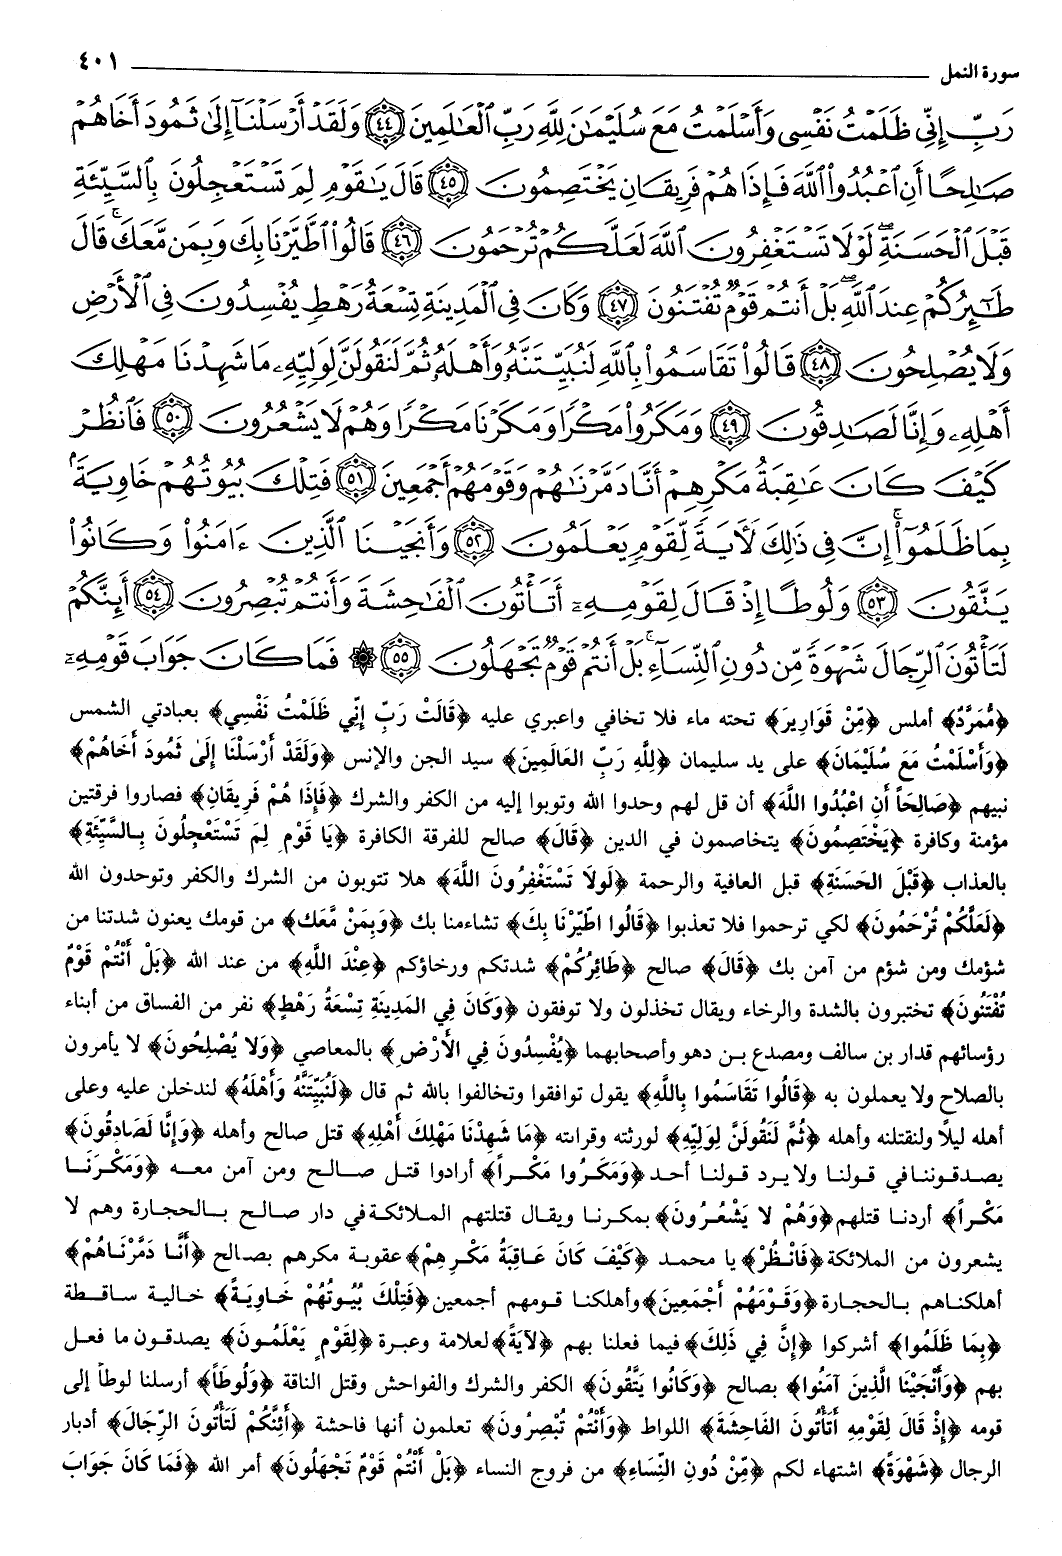 سورة النمل ٤٠١
رَبِّ إِنِّي ظَلَمْتُ نَفْسِي وَأَسْلَمْتُ مَعَ سُلَيْمَٰنَ لِلَّهِ رَبِّ ٱلْعَٰلَمِينَ ﴿٤٤﴾ وَلَقَدْ أَرْسَلْنَآ إِلَىٰ ثَمُودَ أَخَاهُمْ
صَٰلِحًا أَنِ ٱعْبُدُوا۟ ٱللَّهَ فَإِذَا هُمْ فَرِيقَانِ يَخْتَصِمُونَ ﴿٤٥﴾ قَالَ يَٰقَوْمِ لِمَ تَسْتَعْجِلُونَ بِٱلسَّيِّئَةِ
قَبْلَ ٱلْحَسَنَةِ ۖ لَوْلَا تَسْتَغْفِرُونَ ٱللَّهَ لَعَلَّكُمْ تُرْحَمُونَ ﴿٤٦﴾ قَالُوا۟ ٱطَّيَّرْنَا بِكَ وَبِمَن مَّعَكَ ۚ قَالَ
طَٰٓئِرُكُمْ عِندَ ٱللَّهِ ۖ بَلْ أَنتُمْ قَوْمٌ تُفْتَنُونَ ﴿٤٧﴾ وَكَانَ فِي ٱلْمَدِينَةِ تِسْعَةُ رَهْطٍ يُفْسِدُونَ فِي ٱلْأَرْضِ
وَلَا يُصْلِحُونَ ﴿٤٨﴾ قَالُوا۟ تَقَاسَمُوا۟ بِٱللَّهِ لَنُبَيِّتَنَّهُۥ وَأَهْلَهُۥ ثُمَّ لَنَقُولَنَّ لِوَلِيِّهِۦ مَا شَهِدْنَا مَهْلِكَ
أَهْلِهِۦ وَإِنَّا لَصَٰدِقُونَ ﴿٤٩﴾ وَمَكَرُوا۟ مَكْرًا وَمَكَرْنَا مَكْرًا وَهُمْ لَا يَشْعُرُونَ ﴿٥٠﴾ فَٱنظُرْ
كَيْفَ كَانَ عَٰقِبَةُ مَكْرِهِمْ أَنَّا دَمَّرْنَٰهُمْ وَقَوْمَهُمْ أَجْمَعِينَ ﴿٥١﴾ فَتِلْكَ بُيُوتُهُمْ خَاوِيَةًۢ
بِمَا ظَلَمُوٓا۟ ۗ إِنَّ فِي ذَٰلِكَ لَءَايَةً لِّقَوْمٍ يَعْلَمُونَ ﴿٥٢﴾ وَأَنجَيْنَا ٱلَّذِينَ ءَامَنُوا۟ وَكَانُوا۟
يَتَّقُونَ ﴿٥٣﴾ وَلُوطًا إِذْ قَالَ لِقَوْمِهِۦٓ أَتَأْتُونَ ٱلْفَٰحِشَةَ وَأَنتُمْ تُبْصِرُونَ ﴿٥٤﴾ أَئِنَّكُمْ
لَتَأْتُونَ ٱلرِّجَالَ شَهْوَةً مِّن دُونِ ٱلنِّسَآءِ ۚ بَلْ أَنتُمْ قَوْمٌ تَجْهَلُونَ ﴿٥٥﴾ ۞ فَمَا كَانَ جَوَابَ قَوْمِهِۦٓ
﴿مُّمَرَّدٌ﴾ أملس ﴿مِّنْ قَوَارِيرَ﴾ تحته ماء فلا تخافي واعبري عليه ﴿قَالَتْ رَبِّ إِنِّي ظَلَمْتُ نَفْسِي﴾ بعبادتي الشمس
﴿وَأَسْلَمْتُ مَعَ سُلَيْمَانَ﴾ على يد سليمان ﴿لِلَّهِ رَبِّ العَالَمِينَ﴾ سيد الجن والإنس ﴿وَلَقَدْ أَرْسَلْنَا إِلَىٰ ثَمُودَ أَخَاهُمْ﴾
نبيهم ﴿صَالِحَاً أَنِ اعْبُدُوا اللَّهَ﴾ أن قل لهم وحدوا الله وتوبوا إليه من الكفر والشرك ﴿فَإِذَا هُمْ فَرِيقَانِ﴾ فصاروا فرقتين
مؤمنة وكافرة ﴿يَخْتَصِمُونَ﴾ يتخاصمون في الدين ﴿قَالَ﴾ صالح للفرقة الكافرة ﴿يَا قَوْمِ لِمَ تَسْتَعْجِلُونَ بِالسَّيِّئَةِ﴾
بالعذاب ﴿قَبْلَ الحَسَنَةِ﴾ قبل العافية والرحمة ﴿لَولَا تَسْتَغْفِرُونَ اللَّهَ﴾ هلا تتوبون من الشرك والكفر وتوحدون الله
﴿لَعَلَّكُمْ تُرْحَمُونَ﴾ لكي ترحموا فلا تعذبوا ﴿قَالُوا اطَّيَّرْنَا بِكَ﴾ تشاءمنا بك ﴿وَبِمَنْ مَّعَكَ﴾ من قومك يعنون شدتنا من
شؤمك ومن شؤم من آمن بك ﴿قَالَ﴾ صالح ﴿طَائِرُكُمْ﴾ شدتكم ورخاؤكم ﴿عِنْدَ اللَّهِ﴾ من عند الله ﴿بَلْ أَنْتُمْ قَوْمٌ
تُفْتَنُونَ﴾ تختبرون بالشدة والرخاء ويقال تخذلون ولا توفقون ﴿وَكَانَ فِي المَدِينَةِ تِسْعَةُ رَهْطٍ﴾ نفر من الفساق من أبناء
رؤسائهم قدار بن سالف ومصدع بن دهو وأصحابهما ﴿يُفْسِدُونَ فِي الأَرْضِ﴾ بالمعاصي ﴿وَلَا يُصْلِحُونَ﴾ لا يأمرون
بالصلاح ولا يعملون به ﴿قَالُوا تَقَاسَمُوا بِاللَّهِ﴾ يقول توافقوا وتخالفوا بالله ثم قال ﴿لَنُبَيِّتَنَّهُ وَأَهْلَهُ﴾ لندخلن عليه وعلى
أهله ليلاً ولنقتلنه وأهله ﴿ثُمَّ لَنَقُولَنَّ لِوَلِيِّهِ﴾ لورثته وقرابته ﴿مَا شَهِدْنَا مَهْلِكَ أَهْلِهِ﴾ قتل صالح وأهله ﴿وَإِنَّا لَصَادِقُونَ﴾
يصدقوننا في قولنا ولا يرد قولنا أحد ﴿وَمَكَرُوا مَكْراً﴾ أرادوا قتل صالح ومن آمن معه ﴿وَمَكَرْنَا
مَكْراً﴾ أردنا قتلهم ﴿وَهُمْ لَا يَشْعُرُونَ﴾ بمكرنا ويقال قتلتهم الملائكة في دار صالح بالحجارة وهم لا
يشعرون من الملائكة ﴿فَانْظُرْ﴾ يا محمد ﴿كَيْفَ كَانَ عَاقِبَةُ مَكْرِهِمْ﴾ عقوبة مكرهم بصالح ﴿أَنَّا دَمَّرْنَاهُمْ﴾
أهلكناهم بالحجارة ﴿وَقَوْمَهُمْ أَجْمَعِينَ﴾ وأهلكنا قومهم أجمعين ﴿فَتِلْكَ بُيُوتُهُمْ خَاوِيَةً﴾ خالية ساقطة
﴿بِمَا ظَلَمُوا﴾ أشركوا ﴿إِنَّ فِي ذَلِكَ﴾ فيما فعلنا بهم ﴿لآيَةً﴾ لعلامة وعبرة ﴿لِقَوْمٍ يَعْلَمُونَ﴾ يصدقون ما فعل
بهم ﴿وَأَنْجَيْنَا الَّذِينَ آمَنُوا﴾ بصالح ﴿وَكَانُوا يَتَّقُونَ﴾ الكفر والشرك والفواحش وقتل الناقة ﴿وَلُوطَاً﴾ أرسلنا لوطاً إلى
قومه ﴿إِذْ قَالَ لِقَوْمِهِ أَتَأْتُونَ الفَاحِشَةَ﴾ اللواط ﴿وَأَنْتُمْ تُبْصِرُونَ﴾ تعلمون أنها فاحشة ﴿أَئِنَّكُمْ لَتَأْتُونَ الرِّجَالَ﴾ أدبار
الرجال ﴿شَهْوَةً﴾ اشتهاء لكم ﴿مِّنْ دُونِ النِّسَاءِ﴾ من فروج النساء ﴿بَلْ أَنْتُمْ قَوْمٌ تَجْهَلُونَ﴾ أمر الله ﴿فَمَا كَانَ جَوَابَ